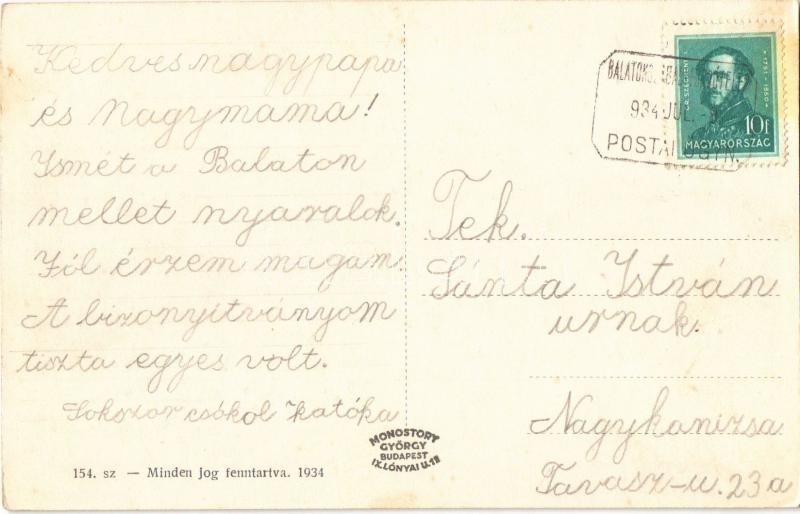 Kedves nagypapa
és Nagymama!
Ismét a Balaton
mellet nyaralok.
Jól érzem magam.
A bizonyitványom
tiszta egyes volt.
Sokszor csókol Katóka
154. sz — Minden jog fenntartva. 1934
MONOSTORY
GYÖRGY
BUDAPEST
IX. LÓNYAI U. 18
934 JUL.
GR. SZÉCHENYI
1791-1860
10f
MAGYARORSZÁG
Tek.
Sánta István
urnak.
Nagykanizsa
Tavasz-u. 23a